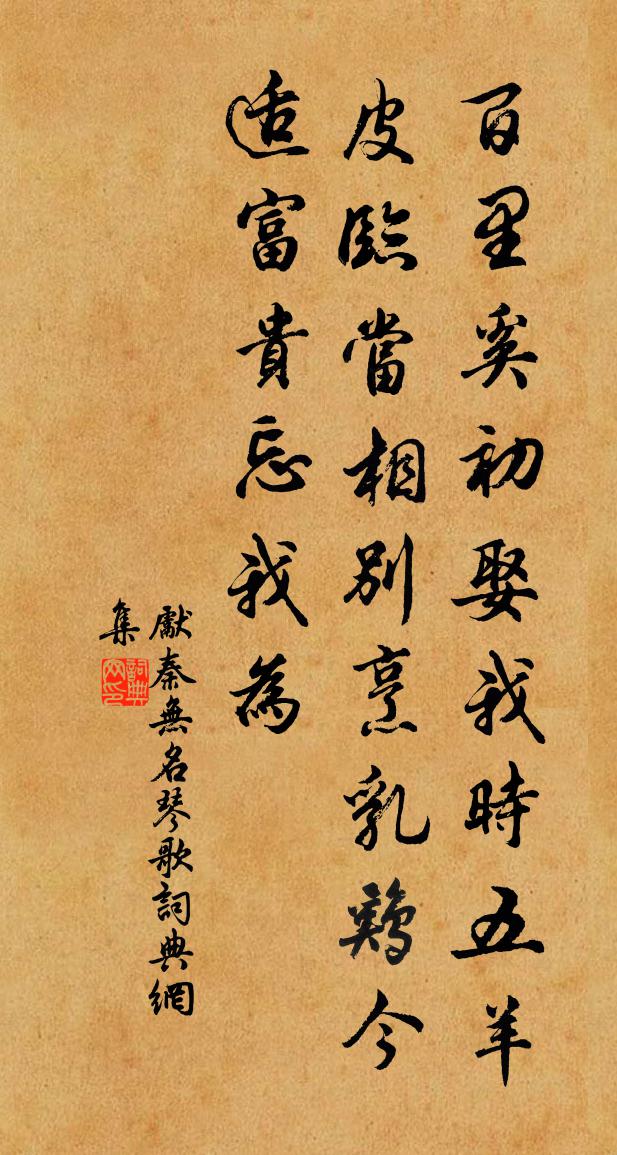 百里奚初娶我時五羊
皮臨當相別烹乳鷄今
适富貴忘我為
獻秦無名琴歌詞典網
集
詞典網印